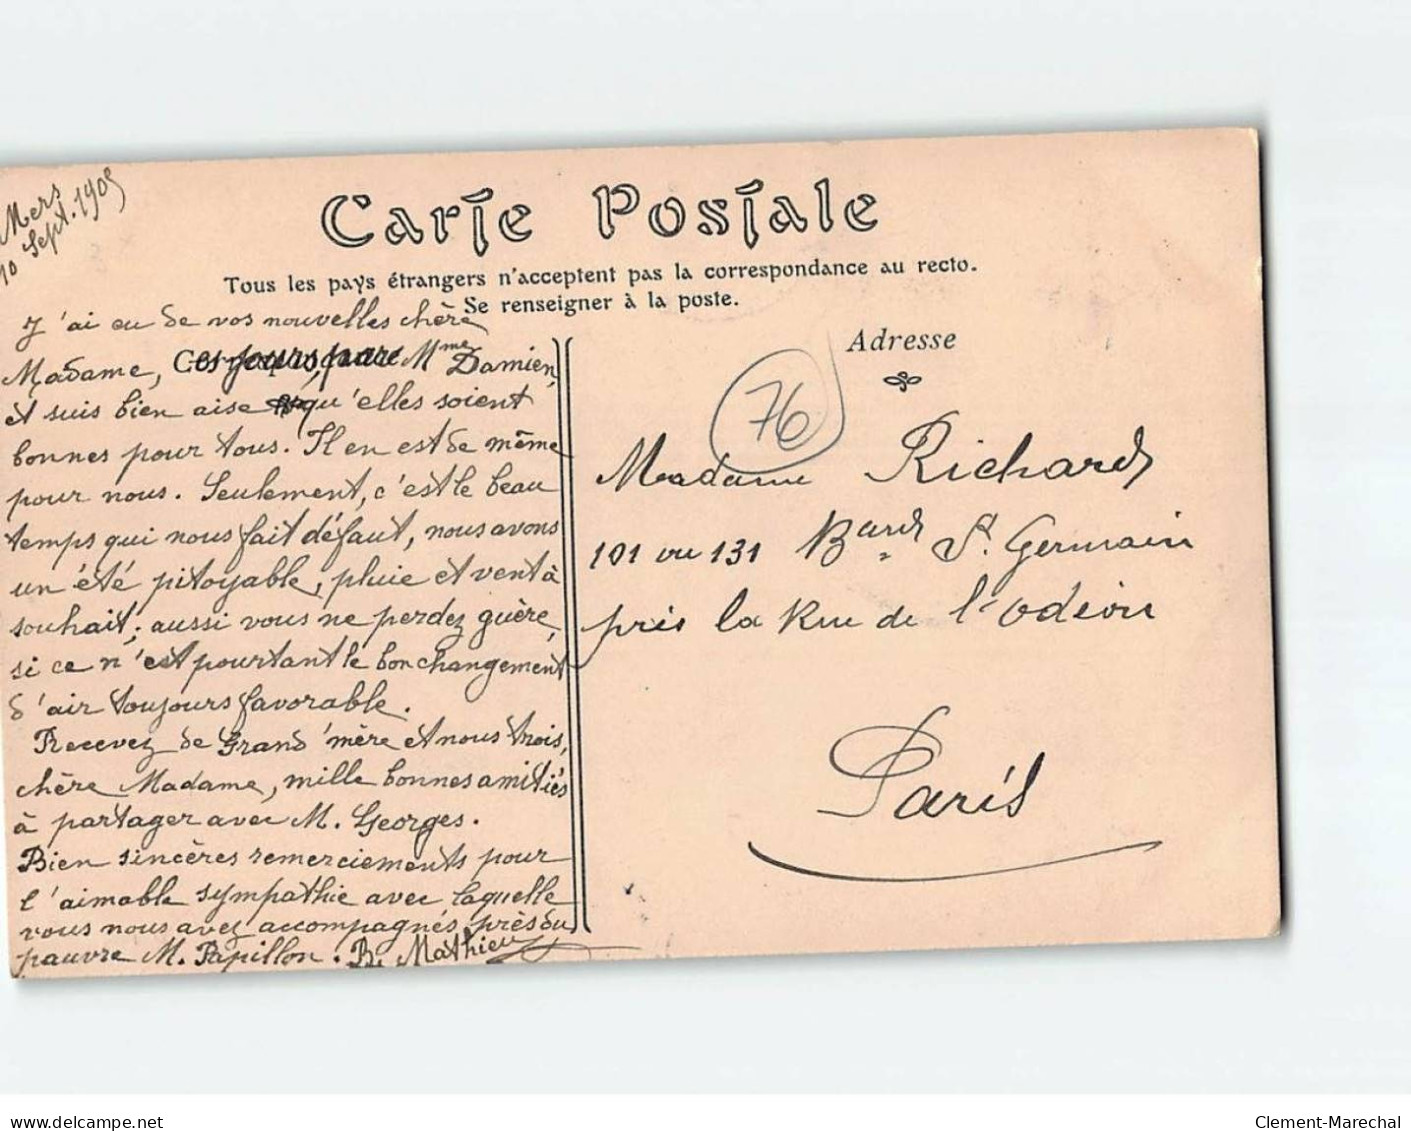 Mers
10 Sept. 1905
Carte Postale
Tous les pays étrangers n'acceptent pas la correspondance au recto.
Se renseigner à la poste.
J'ai eu de vos nouvelles chère
Madame, ces jours, par Mme Damien,
et suis bien aise qu'elles soient
bonnes pour tous. Il en est de même
pour nous. Seulement, c'est le beau
temps qui nous fait défaut, nous avons
un été pitoyable, pluie et vent à
souhait; aussi vous ne perdez guère,
si ce n'est pourtant le bon changement
d'air toujours favorable.
Recevez de Grand'mère et nous trois,
chère Madame, mille bonnes amitiés
à partager avec M. Georges.
Bien sincères remerciements pour
l'aimable sympathie avec laquelle
vous nous avez accompagnés près du
pauvre M. Papillon. B. Mathieu
Adresse
76
Madame Richard
101 ou 131 Bard St. Germain
près la Rue de l'Odéon
Paris
www.delcampe.net
Clement-Marechal